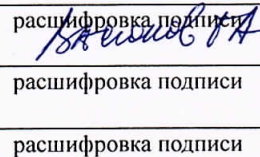 расшифровка подписи
расшифровка подписи
расшифровка подписи